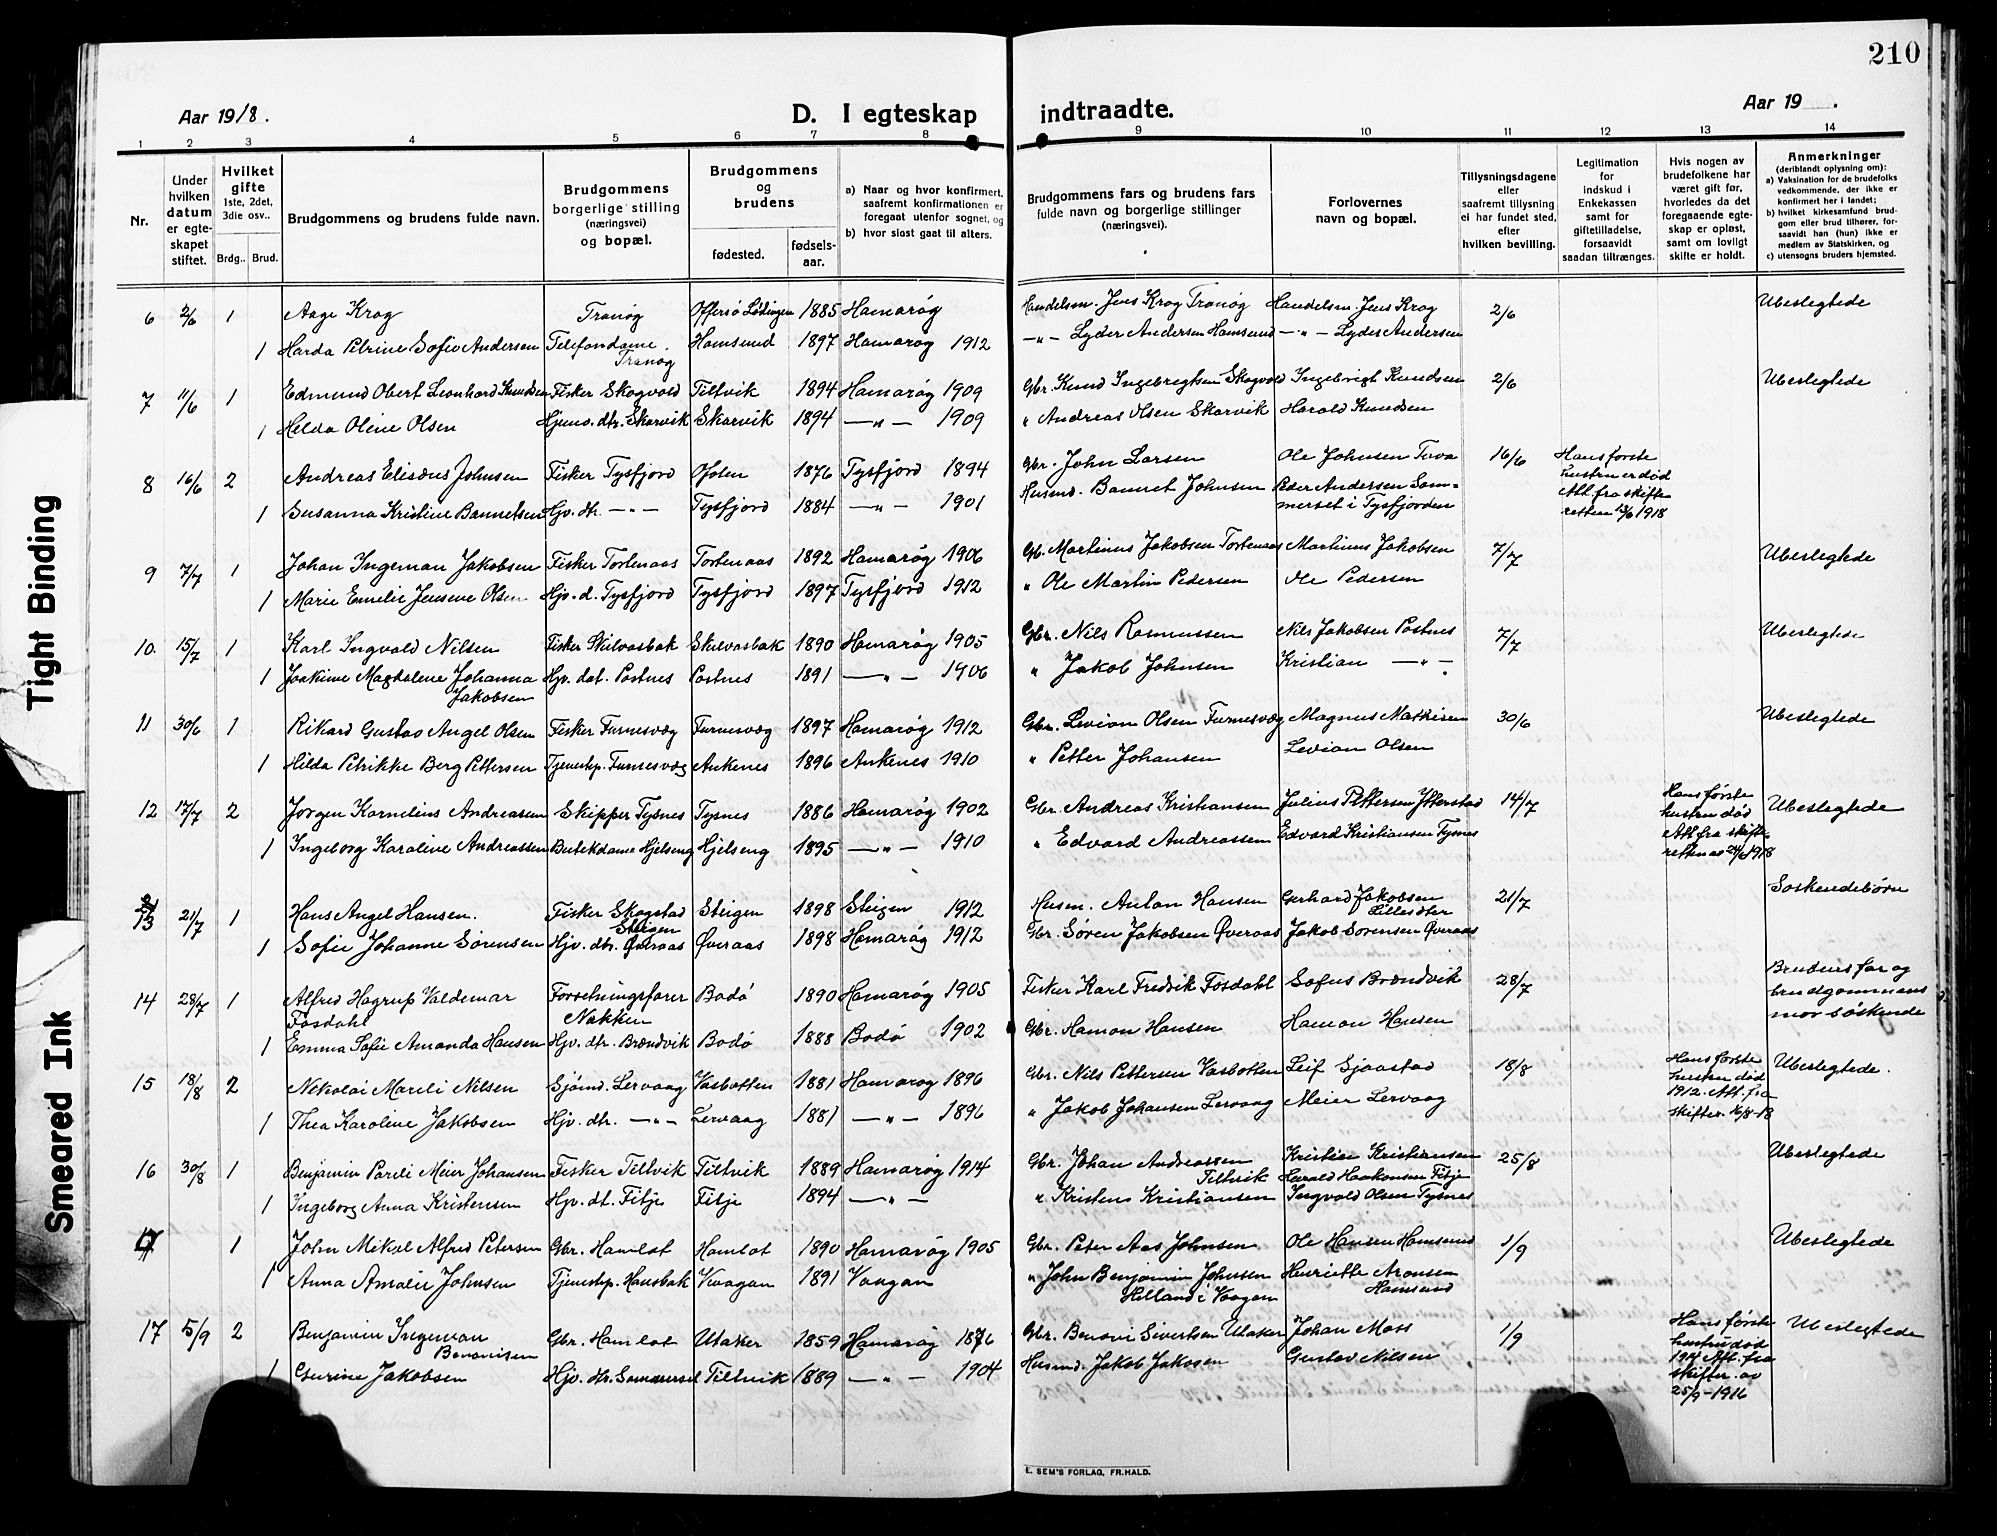 210
Aar 1918.
D. I egteskap indtraadte.
Aar 19 .
1 2 3 4 5 6 7 8 9 10 11 12 13 14
Nr.
Under hvilken datum er egteskapet stiftet.
Hvilket gifte 1ste, 2det, 3die osv..
Brdg.. Brud.
Brudgommens og brudens fulde navn.
Brudgommens borgerlige stilling (næringsvei) og bopæl.
Brudgommens og brudens
fødested.
fødsels-aar.
a) Naar og hvor konfirmert, saafremt konfirmationen er foregaat utenfor sognet, og
b) hvor sidst gaat til alters.
Brudgommens fars og brudens fars fulde navn og borgerlige stillinger (næringsvei).
Forlovernes navn og bopæl.
Tillysningsdagene eller saafremt tillysning ei har fundet sted, efter hvilken bevilling.
Legitimation for indskud i Enkekassen samt for giftetilladelse, forsaavidt saadan tiltrænges.
Hvis nogen av brudefolkene har været gift før, hvorledes da det foregaaende egteskap er opløst, samt om lovligt skifte er holdt.
Anmerkninger (deriblandt oplysning om):
a) Vaksination for de brudefolks vedkommende, der ikke er konfirmert her i landet;
b) hvilket kirkesamfund brudgom eller brud tilhører, forsaavidt han (hun) ikke er medlem av Statskirken, og
c) utensogns bruders hjemsted.
6 2/6 1 Aage Krog Tranøg Offersø Lødingen 1885 Hamarøg Handelsm. Jens Krog Tranøg Handelsm. Jens Krog 2/6 Ubeslegtede
1 Harda Petrine Sofie Andersen Telefondame Tranøg Hamsund 1897 Hamarøg 1912 —„— Lyder Andersen Hamsund —„— Lyder Andersen
7 11/6 1 Edmund Obert Leonhard Knudsen Fisker Skogvold Tiltvik 1894 Hamarøg 1909 Gbr. Knud Ingebregtsen Skogvold Ingebrigt Knudsen 2/6 Ubeslegtede
1 Helda Oline Olsen Hjemv. dtr. Skarvik Skarvik 1894 —„— 1909 „ Andreas Olsen Skarvik Harald Knudsen
8 16/6 2 Andreas Elisæus Johnsen Fisker Tysfjord Ofoten 1876 Tysfjord 1894 Gbr. John Larsen Ole Johnsen 16/6 Hans første hustru er død Att. fra skifteretten 13/6 1918
1 Susanna Kristine Bannetsen Hjv. dtr. —„— Tysfjord 1884 —„— 1901 Husmd. Bannet Johnsen Peder Andersen Sommerset i Tysfjorden
9 7/7 1 Johan Ingeman Jakobsen Fisker Tortenaas Tortenaas 1892 Hamarøg 1906 Gb. Martinus Jakobsen Tortenaas Martinus Jakobsen 7/7 Ubeslegtede
1 Marie Emelie Jensine Olsen Hjv. d. Tysfjord Tysfjord 1897 Tysfjord 1912 „ Ole Martin Pedersen Ole Pedersen
10. 15/7 1 Karl Ingvald Nilsen Fisker Skilvasbak Skilvasbak 1890 Hamarøg 1905 Gbr. Nils Rasmussen Nils Jakobsen Postnes 7/7 Ubeslegtede
1 Joakime Magdalene Johanna Jakobsen Hjv. dat. Postnes Postnes 1891 —„— 1906 „ Jakob Johnsen Kristian —„—
11 30/6 1 Rikard Gustav Angel Olsen Fisker Furnesvæg Furnesvæg 1897 Hamarøg 1912 Gbr. Levian Olsen Furnesvæg Magnus Mathisen 30/6 Ubeslegtede
1 Hilda Petrikke Berg Pettersen Tjenestp. Furnesvæg Ankenes 1896 Ankenes 1910 „ Petter Johansen Levian Olsen
12 17/7 2 Jørgen Kornelius Andreassen Skipper Tysnes Tysnes 1886 Hamarøg 1902 Gbr. Andreas Kristiansen Julius Pettersen Ytterstad 14/7 Hans første hustru død Att fra skifteretten av 24/6 1918 Ubeslegtede
1 Ingeborg Karoline Andreassen Butekdame Hjelseng Hjelseng 1895 —„— 1910 „ Edvard Andreassen Edvard Kristiansen Tysnes
13 21/7 1 Hans Angel Hansen. Fisker Skogstad Steigen Steigen 1898 Steigen 1912 Husm. Anton Hansen Gerhard Jakobsen 21/7 Søskendebørn
1 Sofie Johanne Sørensen Hjv. dtr. Øveraas Øveraas 1898 Hamarøg 1912 Gbr. Søren Jakobsen Øveraas Jakob Sørensen Øveraas
14 28/7 1 Alfred Hagrup Valdemar Fosdahl Forretningsfører Nøkken Bodø 1890 Hamarøg 1905 Fisker Karl Fredrik Fosdahl Sofus Brændvik 28/7 Brudens far og brudgommens mor søskende
1 Emma Sofie Amanda Hansen Hjv. dtr. Brændvik Bodø 1888 Bodø 1902 Gbr. Hamon Hansen Hamon Hansen
15 18/8 2 Nikolai Mareli Nilsen Sjømd. Lervaag Vasbotten 1881 Hamarøg 1896 Gbr. Nils Pettersen Vasbotten Leif Sjaastad 18/8 Hans første hustru død 1912. Att. fra skifter. 16/8-18 Ubeslegtede.
1 Thea Karoline Jakobsen Hjv. dtr. —„— Lervaag 1881 —„— 1896 „ Jakob Johansen Lervaag Meier Lervaag
16 30/8 1 Benjamin Pareli Meier Johansen Fisker Tiltvik Tiltvik 1889 Hamarøg 1914 Gbr. Johan Andreassen Tiltvik Kristian Kristiansen Harald Haakonsen Fitje 25/8 Ubeslegtede
1 Ingeborg Anna Kristensen Hjv. dt. Fitje Fitje 1894 —„— „ Kristens Kristiansen Ingvald Olsen Tysnes
17 1 John Mikal Alfred Petersen Gbr. Hamlot Hamlot 1890 Hamarøg 1905 Gbr. Peter Aas Johnsen Ole Hansen Hamsund 1/9 Ubeslegtede
1 Anna Amalie Johnsen Tjenestp. Hansbak Vaagan 1891 Vaagan „ John Benjamin Johnsen Helland i Vaagan Henriette Aronsen Hamsund
17 5/9 2 Benjamin Ingeman Benonisen Gbr. Hamlot Utaker 1859 Hamarøg 1876 Gbr. Benoni Sivertsen Utaker Johan Moss 1/9 Hans første hustru død Att. fra skifter. av 25/9-1916 Ubeslegtede
1 Gurine Jakobsen Hjv. dtr. Sommersel Tiltvik 1889 —„— 1904 Husmd. Jakob Jakosen Gustav Nilsen
E. SEM'S FORLAG, FR.HALD.
Tight Binding
Smeared Ink